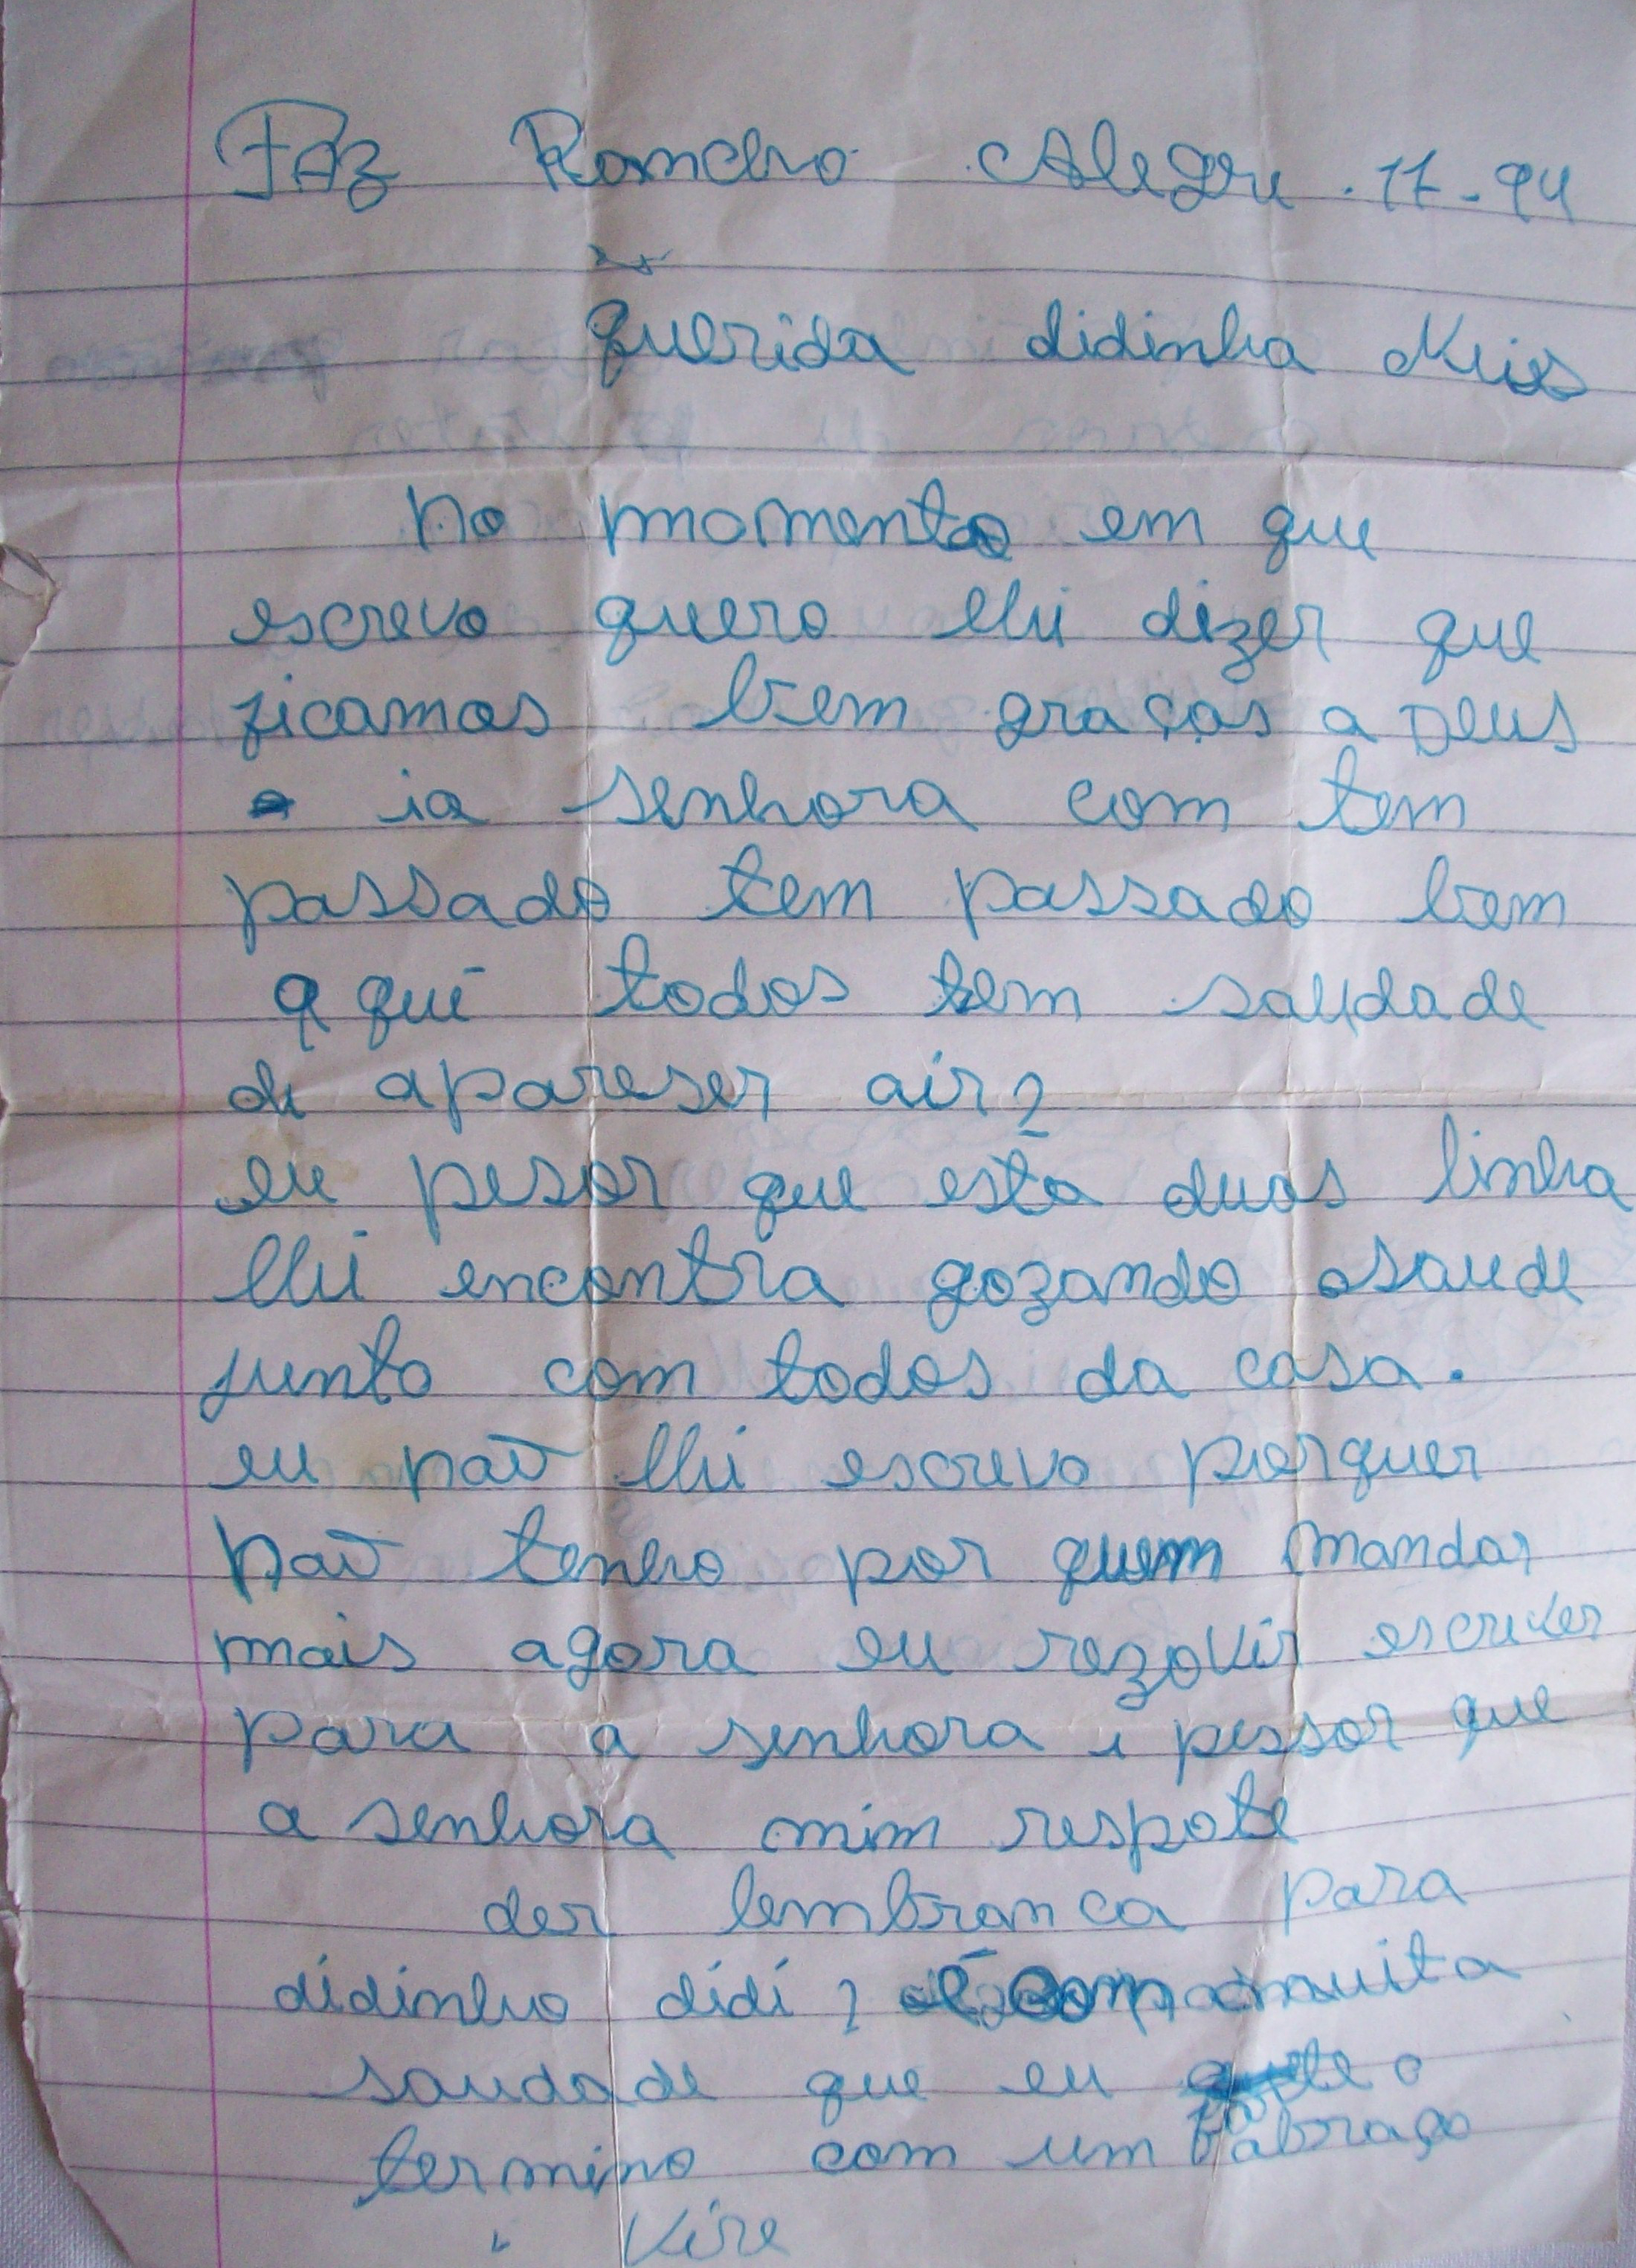 FAZ Rancho Alegre . 17 - 94
querida didinha Neis
no momento em que
escrevo quero lhi dizer que
ficamos bem graças a Deus
ia senhora com tem
passado tem passado bem
aqui todos tem saudade
de apareser air?
eu pesor que esta duas linha
lhi encontra gozando saude
junto com todos da casa.
eu naõ lhi escrevo porquer
naõ tenho por quem mandar
mais agora eu rezovir escrever
para a senhora i pessor que
a senhora mim respote
der lembranca para
didinho didi com muita
saudade que eu
termino com um abraço
Vire